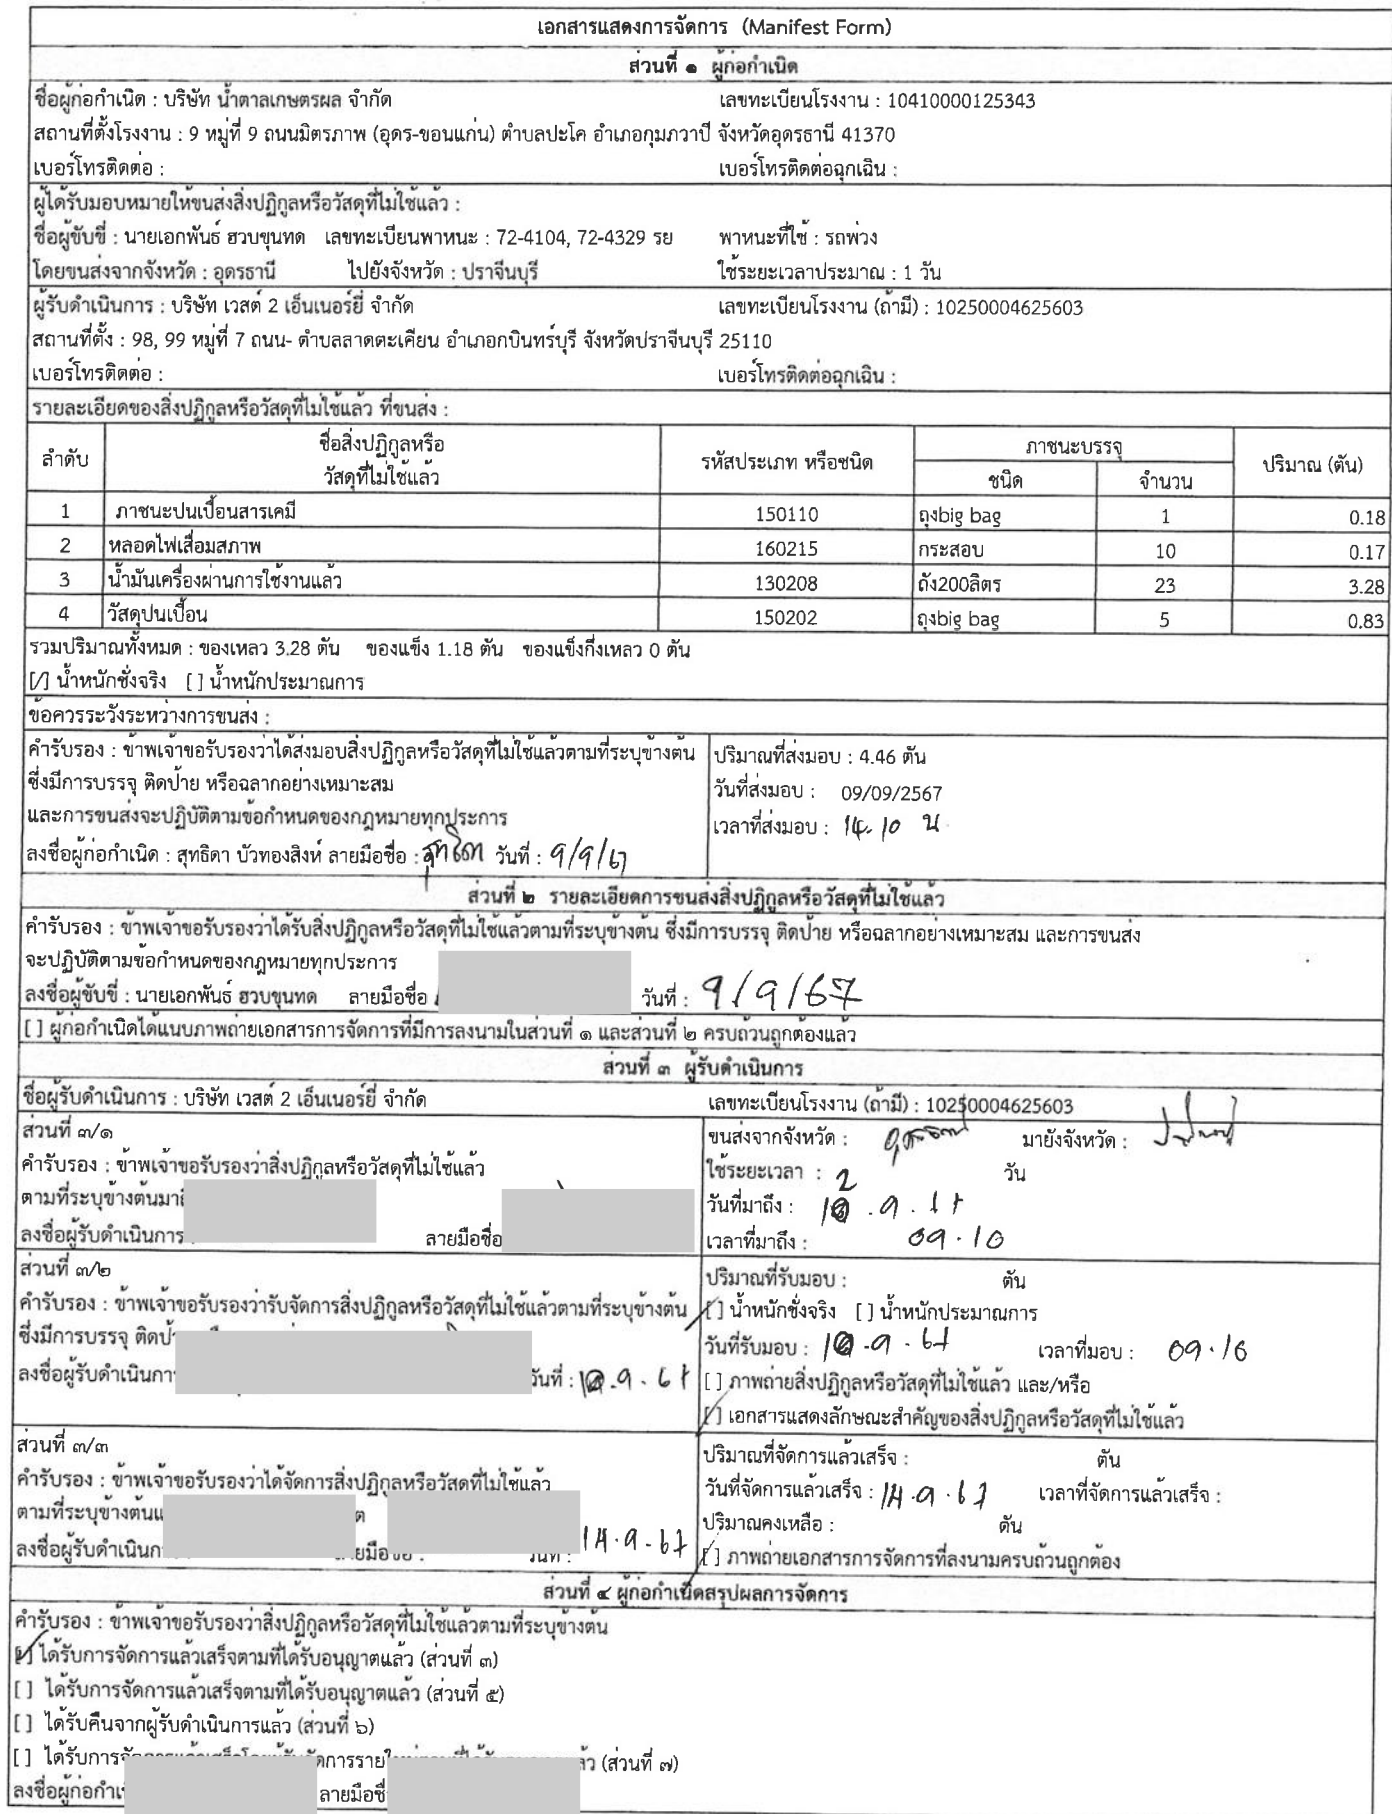 เอกสารแสดงการจัดการ (Manifest Form)
ส่วนที่ ๑ ผู้ก่อกำเนิด
ชื่อผู้ก่อกำเนิด : บริษัท น้ำตาลเกษตรผล จำกัด เลขทะเบียนโรงงาน : 10410000125343
สถานที่ตั้งโรงงาน : 9 หมู่ที่ 9 ถนนมิตรภาพ (อุดร-ขอนแก่น) ตำบลปะโค อำเภอกุมภวาปี จังหวัดอุดรธานี 41370
เบอร์โทรติดต่อ : เบอร์โทรติดต่อฉุกเฉิน :
ผู้ได้รับมอบหมายให้ขนส่งสิ่งปฏิกูลหรือวัสดุที่ไม่ใช้แล้ว :
ชื่อผู้ขับขี่ : นายเอกพันธ์ ฮวบขุนทด เลขทะเบียนพาหนะ : 72-4104, 72-4329 รย พาหนะที่ใช้ : รถพ่วง
โดยขนส่งจากจังหวัด : อุดรธานี ไปยังจังหวัด : ปราจีนบุรี ใช้ระยะเวลาประมาณ : 1 วัน
ผู้รับดำเนินการ : บริษัท เวสต์ 2 เอ็นเนอร์ยี่ จำกัด เลขทะเบียนโรงงาน (ถ้ามี) : 10250004625603
สถานที่ตั้ง : 98, 99 หมู่ที่ 7 ถนน- ตำบลลาดตะเคียน อำเภอกบินทร์บุรี จังหวัดปราจีนบุรี 25110
เบอร์โทรติดต่อ : เบอร์โทรติดต่อฉุกเฉิน :
รายละเอียดของสิ่งปฏิกูลหรือวัสดุที่ไม่ใช้แล้ว ที่ขนส่ง :
ลำดับ ชื่อสิ่งปฏิกูลหรือ วัสดุที่ไม่ใช้แล้ว รหัสประเภท หรือชนิด ภาชนะบรรจุ ปริมาณ (ตัน)
ชนิด จำนวน
1 ภาชนะปนเปื้อนสารเคมี 150110 ถุงbig bag 1 0.18
2 หลอดไฟเสื่อมสภาพ 160215 กระสอบ 10 0.17
3 น้ำมันเครื่องผ่านการใช้งานแล้ว 130208 ถัง200ลิตร 23 3.28
4 วัสดุปนเปื้อน 150202 ถุงbig bag 5 0.83
รวมปริมาณทั้งหมด : ของเหลว 3.28 ตัน ของแข็ง 1.18 ตัน ของแข็งกึ่งเหลว 0 ตัน
[/] น้ำหนักชั่งจริง [ ] น้ำหนักประมาณการ
ข้อควรระวังระหว่างการขนส่ง :
คำรับรอง : ข้าพเจ้าขอรับรองว่าได้ส่งมอบสิ่งปฏิกูลหรือวัสดุที่ไม่ใช้แล้วตามที่ระบุข้างต้น ปริมาณที่ส่งมอบ : 4.46 ตัน
ซึ่งมีการบรรจุ ติดป้าย หรือฉลากอย่างเหมาะสม วันที่ส่งมอบ : 09/09/2567
และการขนส่งจะปฏิบัติตามข้อกำหนดของกฎหมายทุกประการ เวลาที่ส่งมอบ : 14.10 น
ลงชื่อผู้ก่อกำเนิด : สุทธิดา บัวทองสิงห์ ลายมือชื่อ : วันที่ : 9/9/67
ส่วนที่ ๒ รายละเอียดการขนส่งสิ่งปฏิกูลหรือวัสดุที่ไม่ใช้แล้ว
คำรับรอง : ข้าพเจ้าขอรับรองว่าได้รับสิ่งปฏิกูลหรือวัสดุที่ไม่ใช้แล้วตามที่ระบุข้างต้น ซึ่งมีการบรรจุ ติดป้าย หรือฉลากอย่างเหมาะสม และการขนส่ง
จะปฏิบัติตามข้อกำหนดของกฎหมายทุกประการ
ลงชื่อผู้ขับขี่ : นายเอกพันธ์ ฮวบขุนทด ลายมือชื่อ วันที่ : 9/9/67
[ ] ผู้ก่อกำเนิดได้แนบภาพถ่ายเอกสารการจัดการที่มีการลงนามในส่วนที่ ๑ และส่วนที่ ๒ ครบถ้วนถูกต้องแล้ว
ส่วนที่ ๓ ผู้รับดำเนินการ
ชื่อผู้รับดำเนินการ : บริษัท เวสต์ 2 เอ็นเนอร์ยี่ จำกัด เลขทะเบียนโรงงาน (ถ้ามี) : 10250004625603
ส่วนที่ ๓/๑ ขนส่งจากจังหวัด : มายังจังหวัด :
คำรับรอง : ข้าพเจ้าขอรับรองว่าสิ่งปฏิกูลหรือวัสดุที่ไม่ใช้แล้ว ใช้ระยะเวลา : 2 วัน
ตามที่ระบุข้างต้นมา วันที่มาถึง : 10.9.67
ลงชื่อผู้รับดำเนินการ ลายมือชื่อ เวลาที่มาถึง : 09.10
ส่วนที่ ๓/๒ ปริมาณที่รับมอบ : ตัน
คำรับรอง : ข้าพเจ้าขอรับรองว่ารับจัดการสิ่งปฏิกูลหรือวัสดุที่ไม่ใช้แล้วตามที่ระบุข้างต้น [/] น้ำหนักชั่งจริง [ ] น้ำหนักประมาณการ
ซึ่งมีการบรรจุ ติดป้ วันที่รับมอบ : 10.9.67 เวลาที่มอบ : 09.10
ลงชื่อผู้รับดำเนินกา วันที่ : 10.9.67 [ ] ภาพถ่ายสิ่งปฏิกูลหรือวัสดุที่ไม่ใช้แล้ว และ/หรือ
[/] เอกสารแสดงลักษณะสำคัญของสิ่งปฏิกูลหรือวัสดุที่ไม่ใช้แล้ว
ส่วนที่ ๓/๓ ปริมาณที่จัดการแล้วเสร็จ : ตัน
คำรับรอง : ข้าพเจ้าขอรับรองว่าได้จัดการสิ่งปฏิกูลหรือวัสดุที่ไม่ใช้แล้ว วันที่จัดการแล้วเสร็จ : 14.9.67 เวลาที่จัดการแล้วเสร็จ :
ตามที่ระบุข้างต้นแ ปริมาณคงเหลือ : ตัน
ลงชื่อผู้รับดำเนินก ลายมือชื่อ : วันที่ : 14.9.67 [/] ภาพถ่ายเอกสารการจัดการที่ลงนามครบถ้วนถูกต้อง
ส่วนที่ ๔ ผู้ก่อกำเนิดสรุปผลการจัดการ
คำรับรอง : ข้าพเจ้าขอรับรองว่าสิ่งปฏิกูลหรือวัสดุที่ไม่ใช้แล้วตามที่ระบุข้างต้น
[/] ได้รับการจัดการแล้วเสร็จตามที่ได้รับอนุญาตแล้ว (ส่วนที่ ๓)
[ ] ได้รับการจัดการแล้วเสร็จตามที่ได้รับอนุญาตแล้ว (ส่วนที่ ๕)
[ ] ได้รับคืนจากผู้รับดำเนินการแล้ว (ส่วนที่ ๖)
[ ] ได้รับการ (ส่วนที่ ๗)
ลงชื่อผู้ก่อกำเ ลายมือชื่